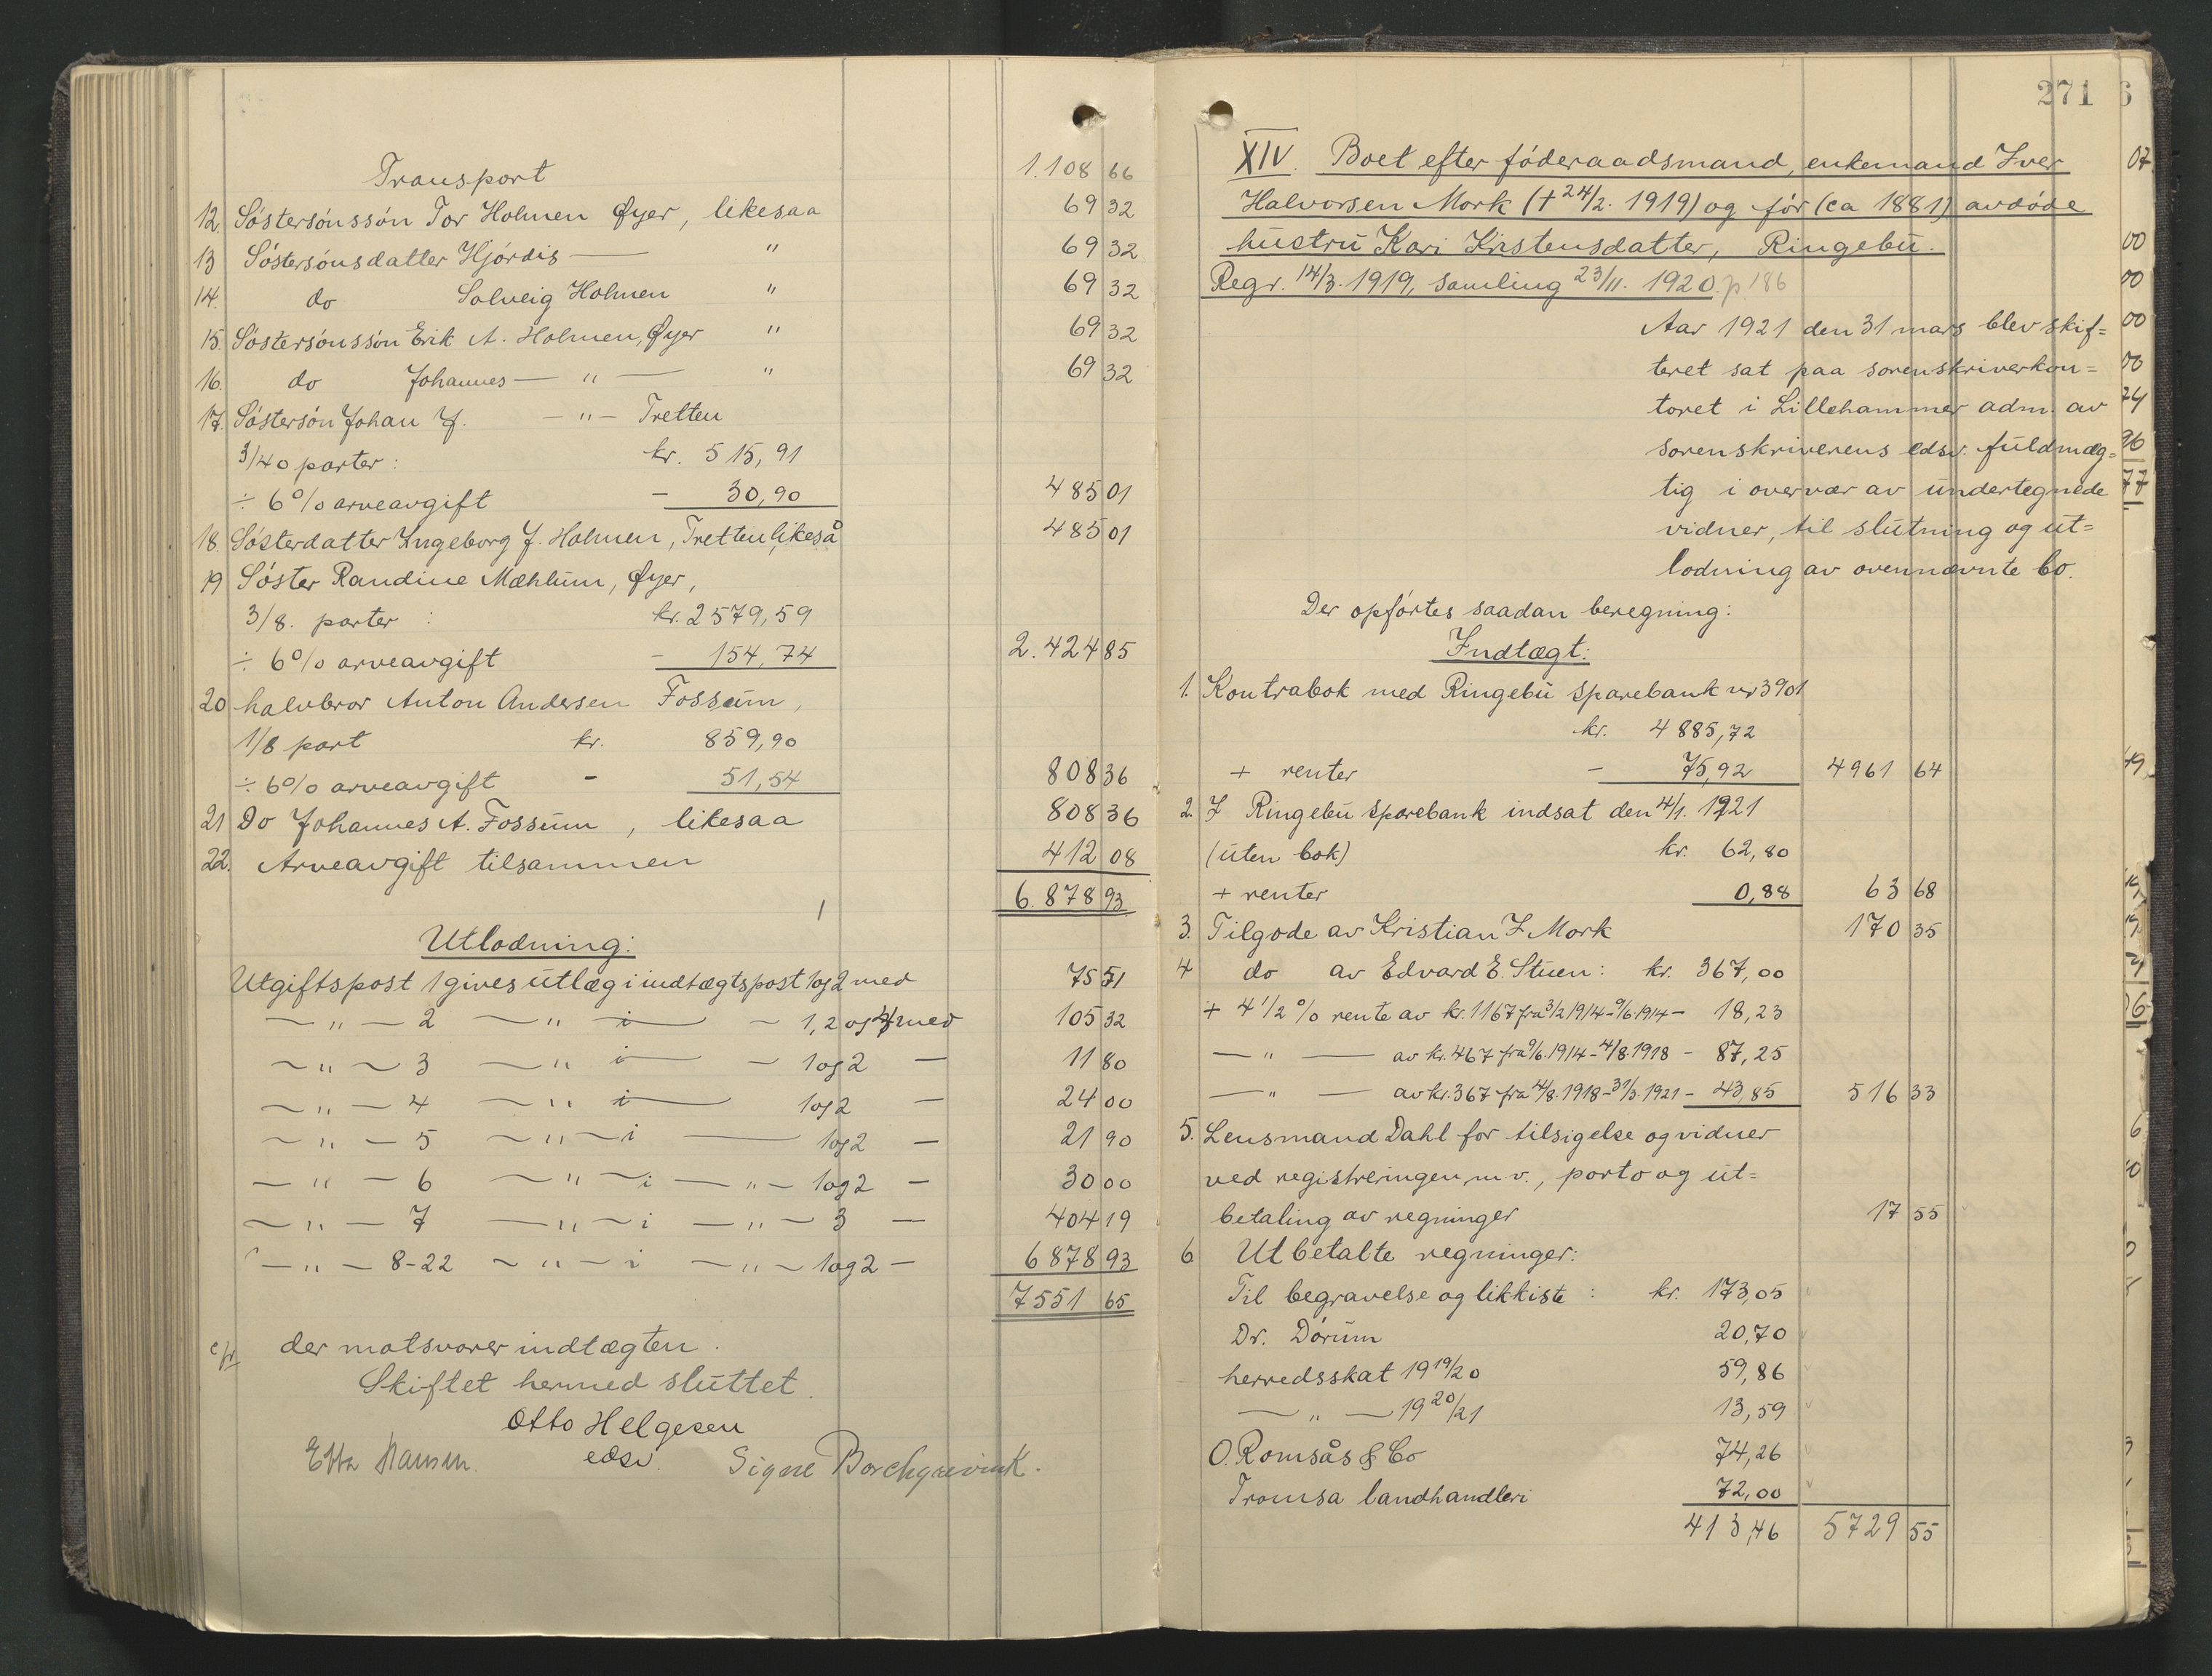 Transport 1.108 66
12. Söstersönssön Tor Holmen Øyer, likesaa 69 32
13 Söstersönsdatter Hjördis — " 69 32
14. do Solveig Holmen " 69 32
15. Söstersönssön Erik A. Holmen, Øyer " 69 32
16. do Johannes — " — " 69 32
17. Söstersön Johan J. — " — Tretten
3/40 parter: kr. 515,91
÷ 6% arveavgift - 30,90 485 01
18. Sösterdatter Ingeborg J. Holmen, Tretten, likeså 485 01
19 Söster Randine Mæhlum, Øyer,
3/8. parter : kr. 2579,59
÷ 6% arveavgift - 154,74 2.424 85
20 halvbror Anton Andersen Fossum,
1/8 part kr. 859,90
÷ 6% arveavgift - 51,54 808 36
21 Do Johannes A. Fossum, likesaa 808 36
22. Arveavgift tilsammen 412 08
6.878 93
Utlodning:
Utgiftspost 1 gives utlæg i indtægtspost 1 og 2 med 75 51
— " — 2 — " i — - 1, 2 og 4 med 105 32
— " — 3 — " i — - 1 og 2 — 11 80
— " — 4 — " i — 1 og 2 — 24 00
— " — 5 — " — i — 1 og 2 — 21 90
— " — 6 — " — i — " — 1 og 2 — 30 00
— " — 7 — " — i — " — 3 — 404 19
— " — 8-22 — " — i — " — 1 og 2 — 6878 93
7551 65
cfr der motsvarer indtægten.
Skiftet hermed sluttet.
Otto Helgesen
edsv.
Etta Hansen. Signe Borchgrevink.
271
XIV. Boet efter föderaadsmand, enkemand Iver
Halvorsen Mork († 24/2. 1919) og för (ca 1881) avdöde
hustru Kari Kristensdatter, Ringebu.
Regr. 14/3. 1919, samling 23/11. 1920. p. 186
Aar 1921 den 31 mars blev skif=
teret sat paa sorenskriverkon=
toret i Lillehammer adm. av
sorenskriverens edsv. fuldmæg=
tig i overvær av undertegnede
vidner, til slutning og ut=
lodning av ovennævnte bo.
Der opförtes saadan beregning:
Indtægt:
1. Kontrabok med Ringebu sparebank nr 3901
kr. 4885,72
+ renter - 75,92 4961 64
2. I Ringebu sparebank indsat den 4/1. 1921
(uten bok) kr. 62,80
+ renter 0,88 63 68
3. Tilgode av Kristian I. Mork 170 35
4 do av Edvard E. Stuen: kr. 367,00
+ 4 1/2 % rente av kr. 1167 fra 3/2 1914 - 9/6. 1914 - 18,23
— " — av kr. 467 fra 9/6. 1914 - 4/8. 1918 - 87,25
— " — av kr. 367 fra 4/8. 1918 - 31/3. 1921 - 43,85 516 33
5. Lensmand Dahl for tilsigelse og vidner
ved registreringen m. v., porto og ut=
betaling av regninger 17 55
6 Utbetalte regninger:
Til begravelse og likkiste : kr. 173,05
Dr. Dörum 20,70
herredsskat 1919/20 59,86
— " — 1920/21 13,59
O. Romsås & Co 74,26
Tromsa landhandleri 72,00
413,46 5729 55